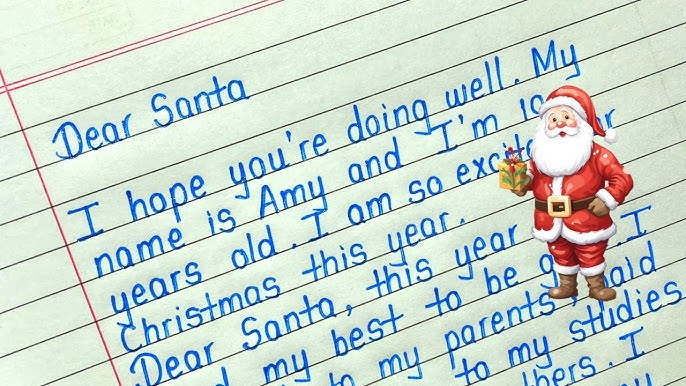 Dear Santa
I hope you're doing well. My
name is Amy and I'm
years old. I am so
Christmas this year.
Dear Santa, this year
my best to be I
to my parents, paid
to my studies
I